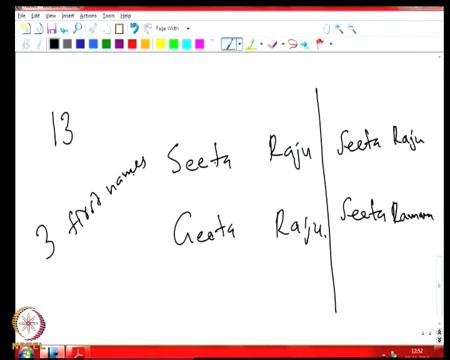 File Edit View Insert Actions Tools Help
Page Width
B I
13
3 first names
Seeta Raju
Geeta Raju.
Seeta Raju
Seeta Ramana
NPTEL
12:52